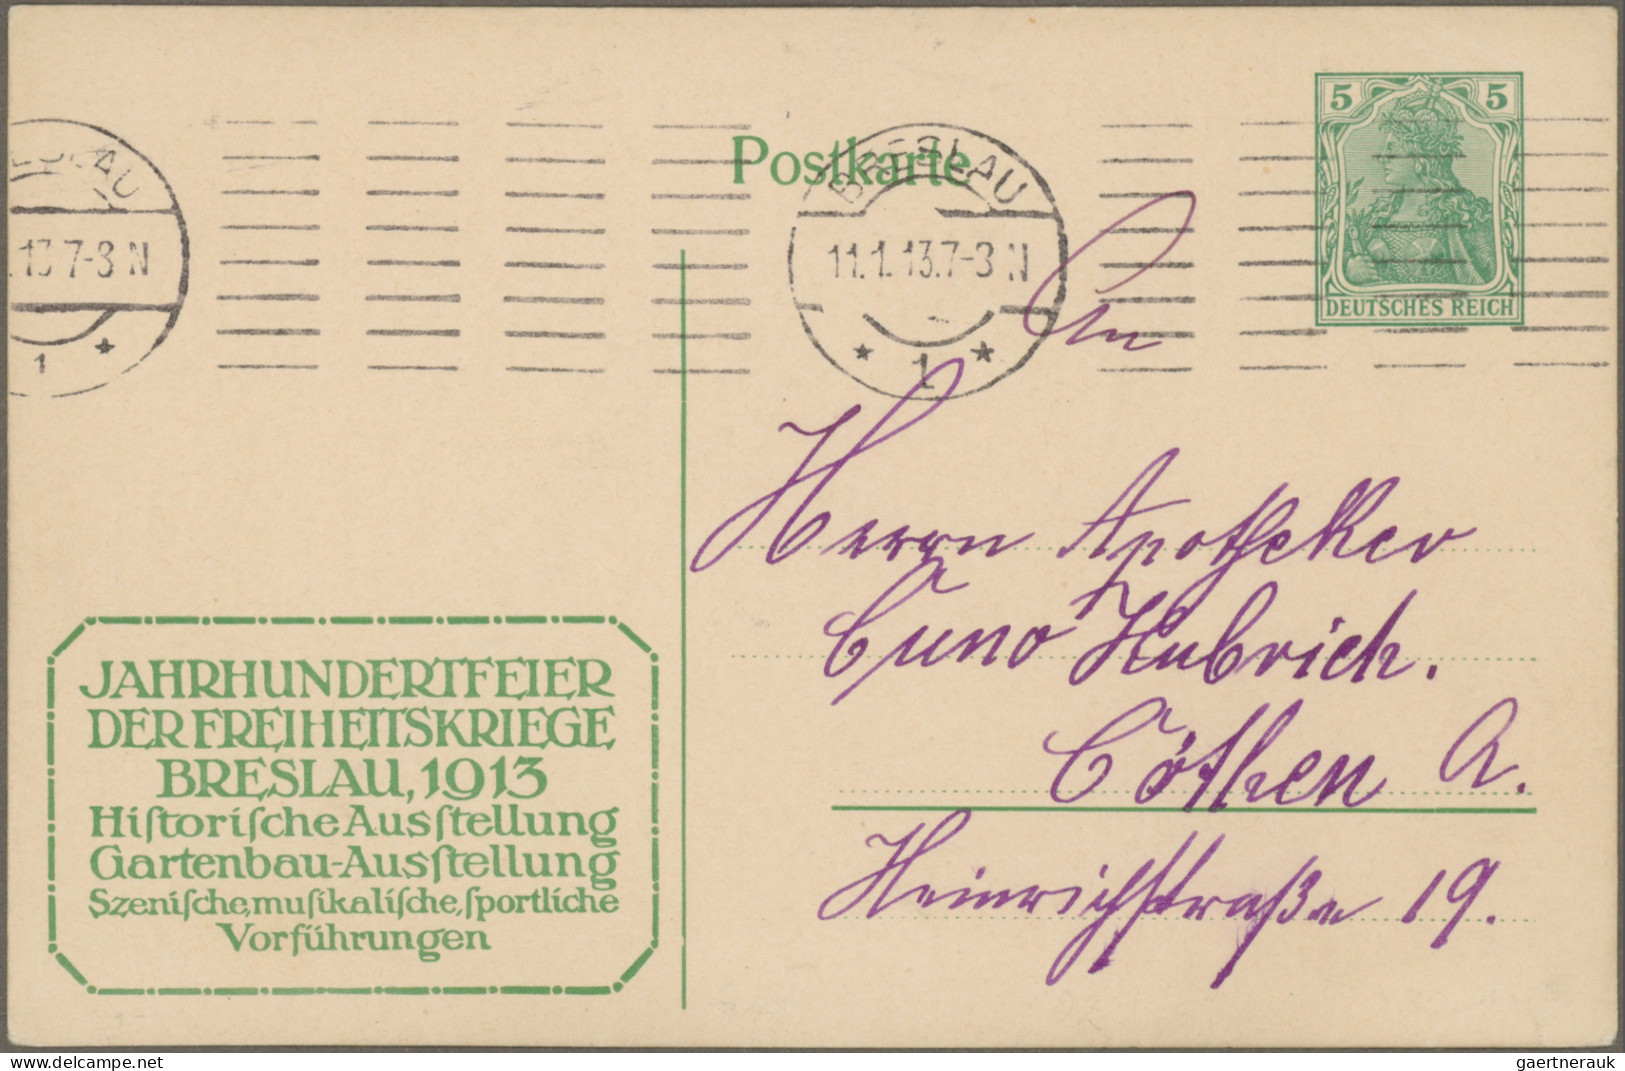 Postkarte
BRESLAU
11.1.13.7-8 N
* 1 *
LAU
.13 7-8 N
1 *
5 5
DEUTSCHES REICH
An
Herrn Apotheker
Cuno Hubrich.
Cöthen A.
Heinrichstraße 19.
JAHRHUNDERTFEIER
DER FREIHEITSKRIEGE
BRESLAU, 1913
Hiſtoriſche Ausſtellung
Gartenbau-Ausſtellung
Szeniſche, muſikaliſche, ſportliche
Vorführungen
www.delcampe.net
gaertnerauk